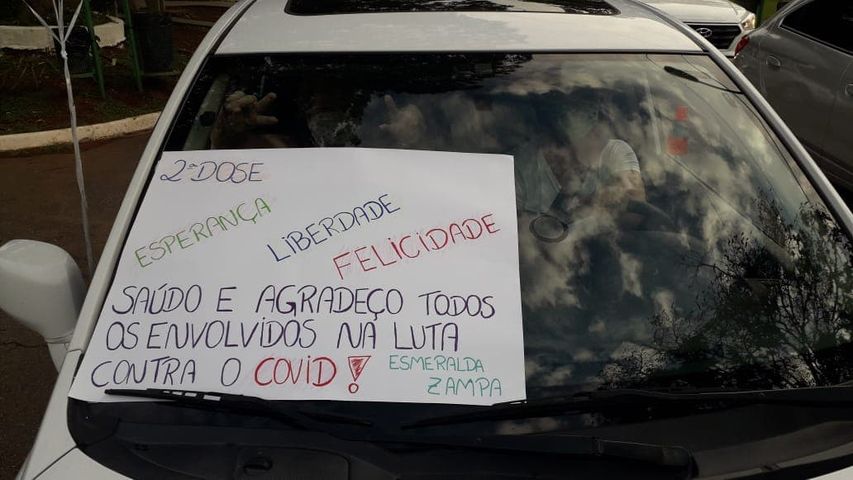 2ª DOSE
ESPERANÇA
LIBERDADE
FELICIDADE
SAÚDO E AGRADEÇO TODOS
OS ENVOLVIDOS NA LUTA
CONTRA O COVID!
ESMERALDA
ZAMPA